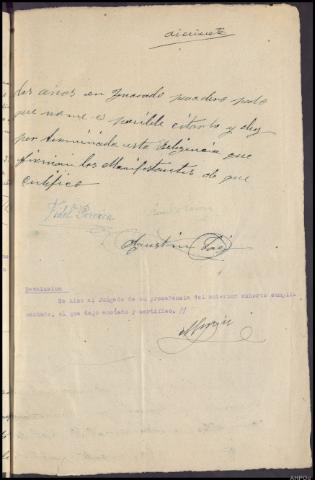 diecisiete
dos años en ignorado paradero por lo
que no me es posible citarlo y doy
por terminada esta diligencia que
firman los Manifestantes de que
certifico
Fidel Pereira
Agustin
Devolucion
Se hizo al Juzgado de su procedencia del anterior exhorto cumpli-
mentado, el que dejo anotado y certifico. //
AHPOU